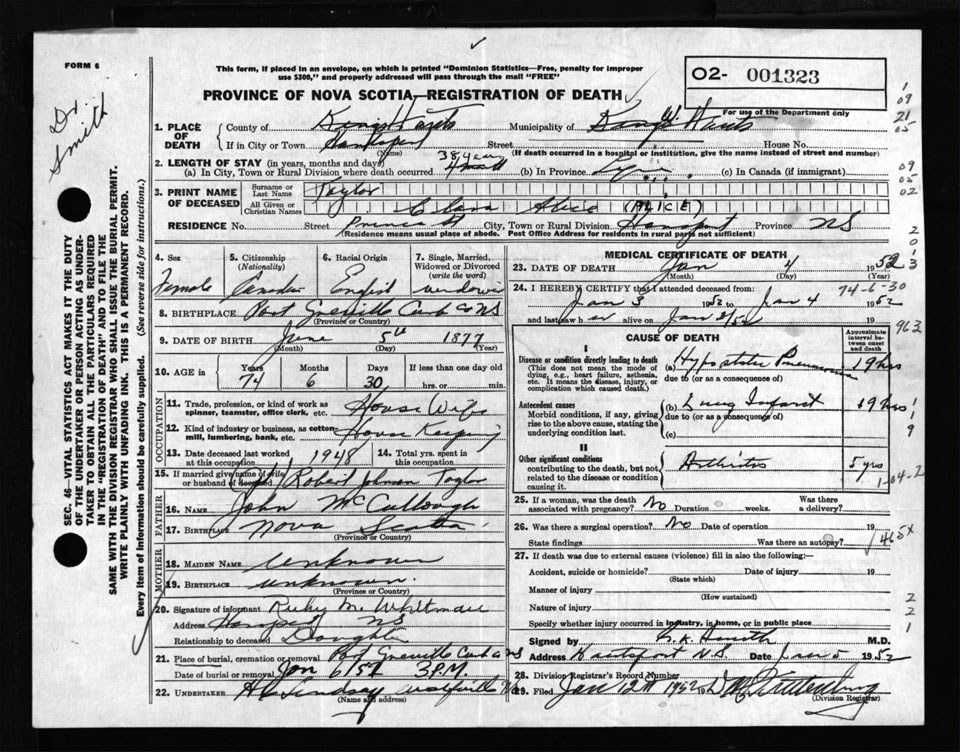 FORM 6
Dr. Smith
This form, if placed in an envelope, on which is printed "Dominion Statistics—Free, penalty for improper
use $300," and properly addressed will pass through the mail "FREE"
O2- 001323
PROVINCE OF NOVA SCOTIA—REGISTRATION OF DEATH
For use of the Department only
1. PLACE OF DEATH
County of Hants Municipality of W. Hants
If in City or Town Hantsport (Name) Street House No.
(If death occurred in a hospital or institution, give the name instead of street and number)
2. LENGTH OF STAY (in years, months and days)
(a) In City, Town or Rural Division where death occurred 38 years (b) In Province Life (c) In Canada (if immigrant)
3. PRINT NAME OF DECEASED
Surname or Last Name Taylor
All Given or Christian Names Clara Alice (ALICE)
RESIDENCE No. Street Prince St City, Town or Rural Division Hantsport Province NS
(Residence means usual place of abode. Post Office Address for residents in rural parts not sufficient)
4. Sex Female
5. Citizenship (Nationality) Canadian
6. Racial Origin English
7. Single, Married, Widowed or Divorced (write the word) widow
8. BIRTHPLACE Port Greville Cumb Co NS
(Province or Country)
9. DATE OF BIRTH June 5th 1877
(Month) (Day) (Year)
10. AGE in Years 74 Months 6 Days 30 If less than one day hrs. or min.
OCCUPATION
11. Trade, profession, or kind of work as spinner, teamster, office clerk, etc. House Wife
12. Kind of industry or business, as cotton-mill, lumbering, bank, etc. House Keeping
13. Date deceased last worked at this occupation 1948 14. Total yrs. spent in this occupation
15. If married give name of wife or husband of deceased Robert Johnson Taylor
FATHER
16. NAME John McCullough
17. Birthplace Nova Scotia
(Province or Country)
MOTHER
18. MAIDEN NAME Unknown
19. BIRTHPLACE unknown.
(Province or Country)
20. Signature of informant Ruby M. Whitman
Address Hantsport NS
Relationship to deceased Daughter
21. Place of burial, cremation or removal Port Greville Cumb Co NS
Date of burial or removal Jan 6/52 3 P.M.
22. UNDERTAKER Lindsay Wolfville
(Name and address)
MEDICAL CERTIFICATE OF DEATH
23. DATE OF DEATH Jan 4 1952
(Month) (Day) (Year)
24. I HEREBY CERTIFY that I attended deceased from: 74-6-30
Jan 3 1952 to Jan 4 1952
and last saw her alive on Jan 3/52
CAUSE OF DEATH
Approximate interval between onset and death
I
Disease or condition directly leading to death
(This does not mean the mode of dying, e.g., heart failure, asthenia, etc. It means the disease, injury, or complication which caused death.)
(a) Hypostatic Pneumonia 19 hrs
due to (or as a consequence of)
Antecedent causes
Morbid conditions, if any, giving rise to the above cause, stating the underlying condition last.
(b) Lung Infarct 19 hrs
due to (or as a consequence of)
(c)
II
Other significant conditions
contributing to the death, but not related to the disease or condition causing it.
Arthritis 5 yrs
25. If a woman, was the death associated with pregnancy? No Duration weeks. Was there a delivery?
26. Was there a surgical operation? No Date of operation 19
State findings Was there an autopsy?
27. If death was due to external causes (violence) fill in also the following:—
Accident, suicide or homicide? Date of injury 19
(State which)
Manner of injury
(How sustained)
Nature of injury
Specify whether injury occurred in industry, in home, or in public place
Signed by Smith M.D.
Address Hantsport N.S. Date Jan 5 1952
28. Division Registrar's Record Number
29. Filed Jan 12th 1952
(Division Registrar)
1
09
21
05
09
05
02
2
0
1
3
963
1
1
9
1-04-2
465x
2
2
1
SEC. 46—VITAL STATISTICS ACT MAKES IT THE DUTY
OF THE UNDERTAKER OR PERSON ACTING AS UNDER-
TAKER TO OBTAIN ALL THE PARTICULARS REQUIRED
IN THE "REGISTRATION OF DEATH" AND TO FILE THE
SAME WITH THE DIVISION REGISTRAR WHO SHALL ISSUE THE BURIAL PERMIT.
WRITE PLAINLY WITH UNFADING INK. THIS IS A PERMANENT RECORD.
Every item of information should be carefully supplied. (See reverse side for instructions.)